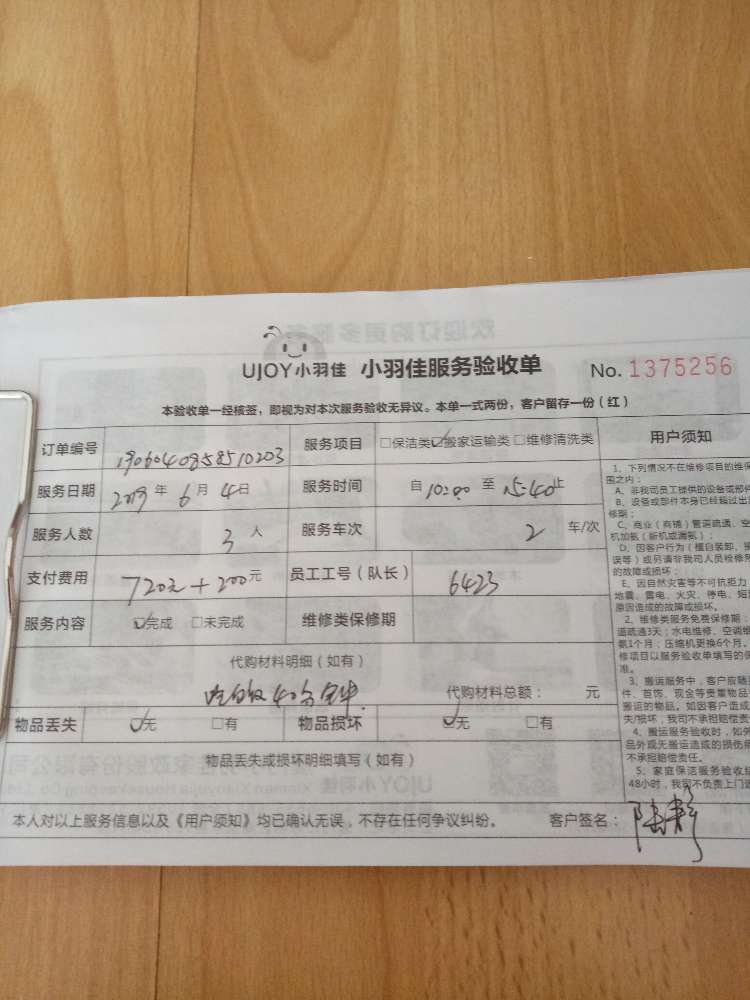 UJOY小羽佳 小羽佳服务验收单 No. 1375256
本验收单一经核签，即视为对本次服务验收无异议。本单一式两份，客户留存一份（红）
订单编号 1906040858510203 服务项目 □保洁类☑搬家运输类□维修清洗类 用户须知
服务日期 2019年6月4日 服务时间 自10:00至15:40止
服务人数 3人 服务车次 2车/次
支付费用 720元+200元 员工工号（队长） 6423
服务内容 ☑完成 □未完成 维修类保修期
代购材料明细（如有）
吃饭40分钟 代购材料总额： 元
物品丢失 ☑无 □有 物品损坏 ☑无 □有
物品丢失或损坏明细填写（如有）
本人对以上服务信息以及《用户须知》均已确认无误，不存在任何争议纠纷。 客户签名：陆静
1、下列情况不在维修项目的维保
围之内：
A、非我司员工提供的设备或部件
B、设备或部件本身已经超过出
修期；
C、商业（商铺）管道疏通、空
机加氨（新机或漏氨）；
D、因客户行为（擅自装卸、
误等）或另请非我司人员检修
的故障或损坏；
E、因自然灾害等不可抗拒力
地震、雷电、火灾、停电、短
原因造成的故障或损坏。
2、维修类服务免费保修期：
道疏通3天；水电维修、空调维
氨1个月；压缩机更换6个月。
修项目以服务验收单填写的保
准。
3、搬运服务中，客户应随
件、首饰、现金等贵重物品
搬运的物品。如因客户造成
失/损坏，我司不承担赔偿责
4、搬运服务验收时，如外
品外观无搬运造成的损伤
不承担赔偿责任。
5、家庭保洁服务验收
48小时，我司不负责上门